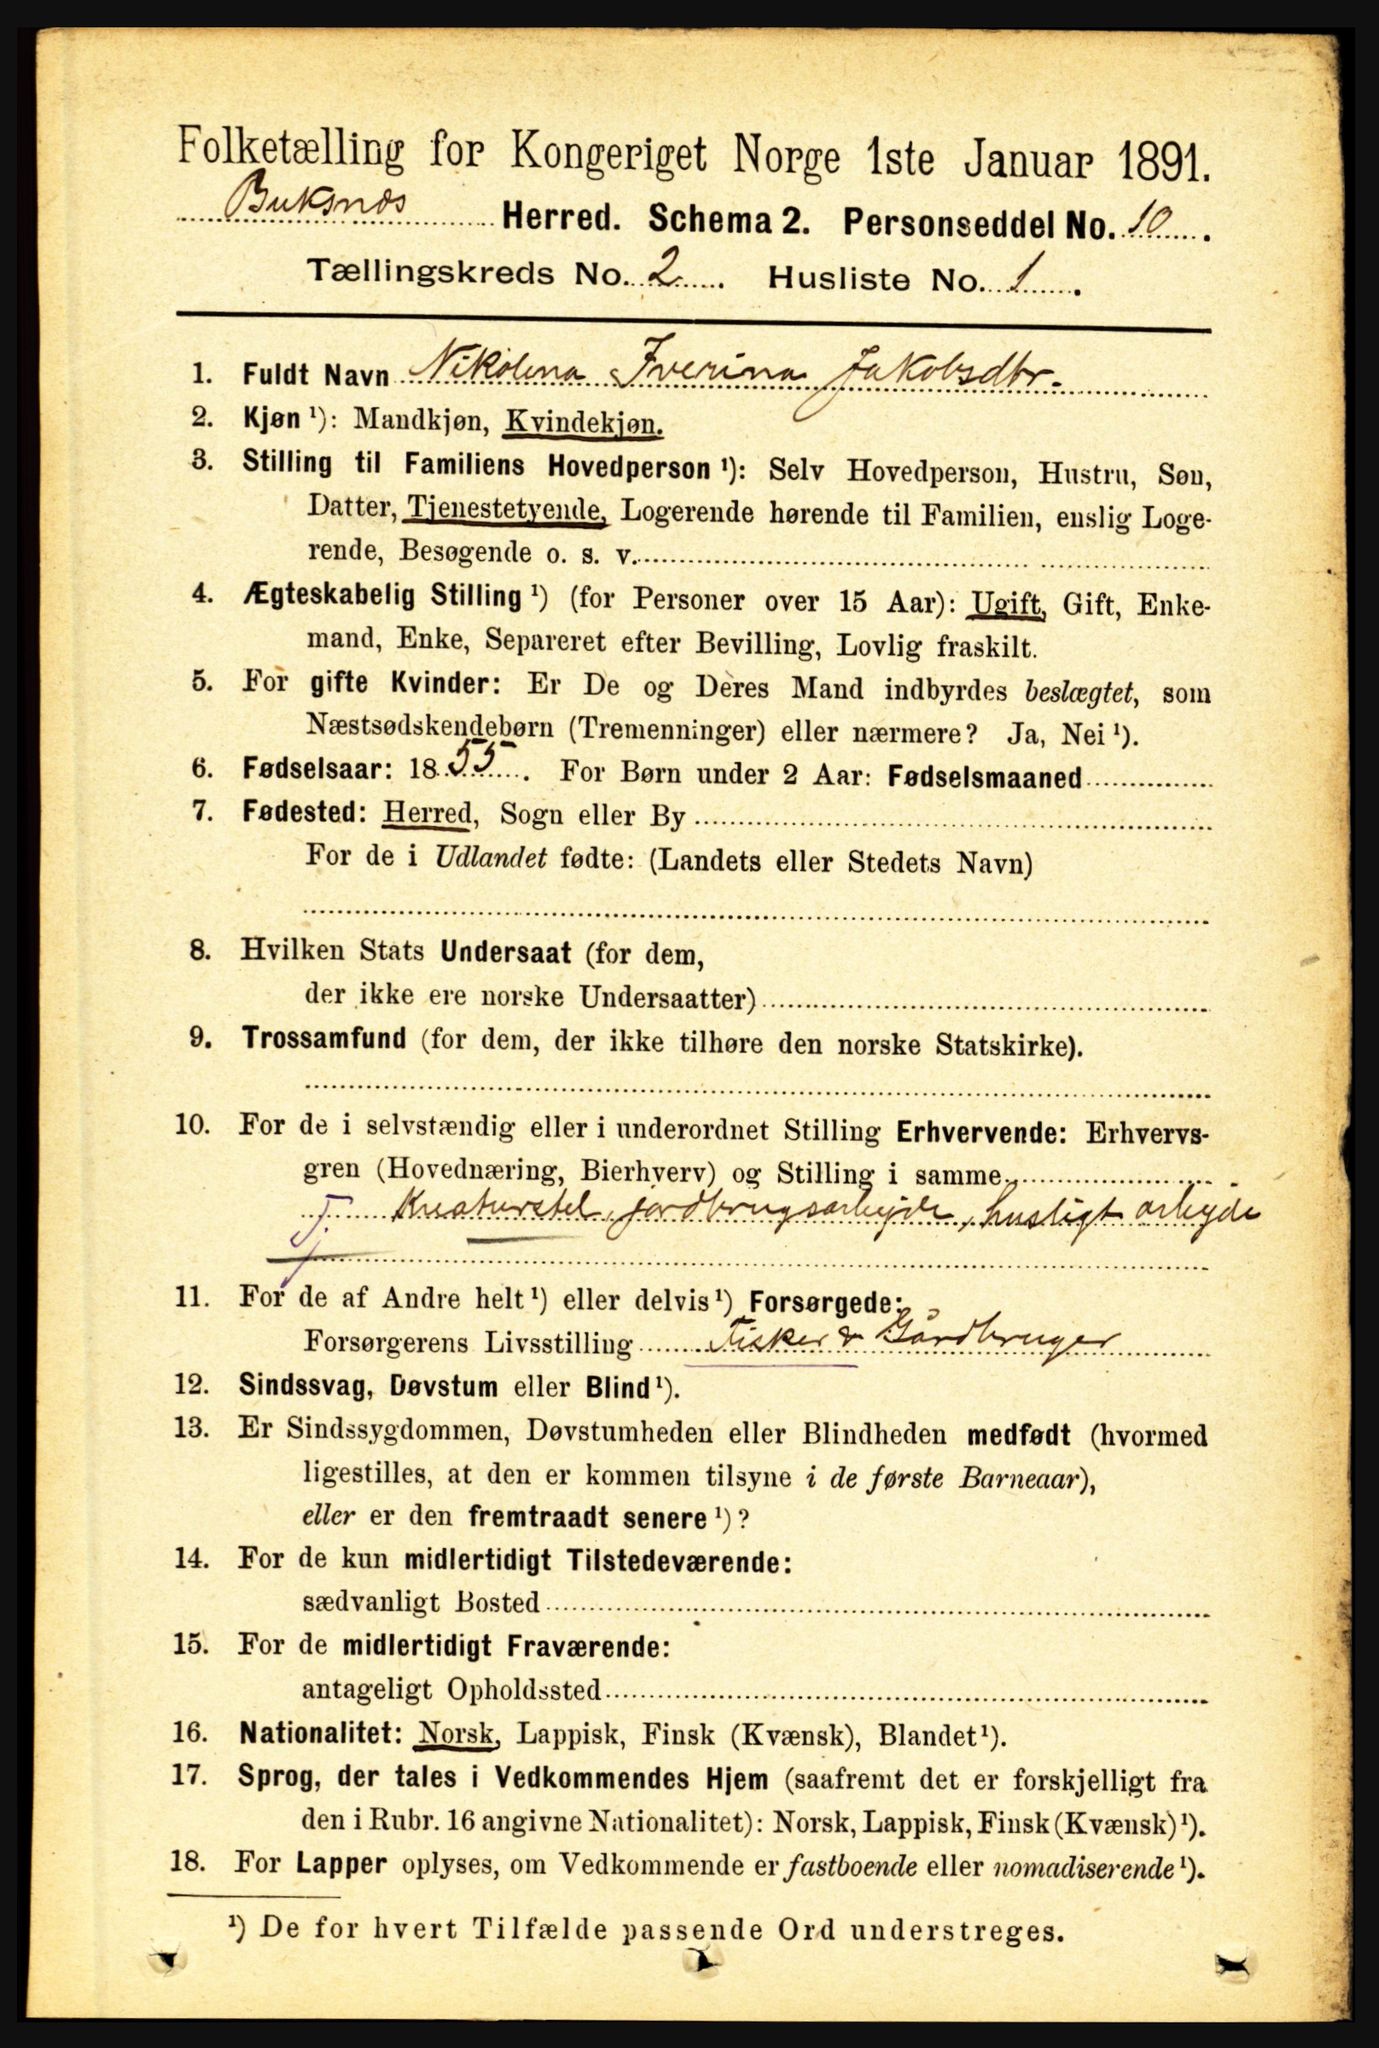 Folketælling for Kongeriget Norge 1ste Januar 1891.
Buksnes Herred. Schema 2. Personseddel No. 10.
Tællingskreds No. 2. Husliste No. 1.
1. Fuldt Navn Nikolina Iverina Jakobsdtr.
2. Kjøn ¹): Mandkjøn, Kvindekjøn.
3. Stilling til Familiens Hovedperson ¹): Selv Hovedperson, Hustru, Søn,
Datter, Tjenestetyende, Logerende hørende til Familien, enslig Loge-
rende, Besøgende o. s. v.
4. Ægteskabelig Stilling ¹) (for Personer over 15 Aar): Ugift, Gift, Enke-
mand, Enke, Separeret efter Bevilling, Lovlig fraskilt.
5. For gifte Kvinder: Er De og Deres Mand indbyrdes beslægtet, som
Næstsødskendebørn (Tremenninger) eller nærmere? Ja, Nei ¹).
6. Fødselsaar: 1855. For Børn under 2 Aar: Fødselsmaaned
7. Fødested: Herred, Sogn eller By
For de i Udlandet fødte: (Landets eller Stedets Navn)
8. Hvilken Stats Undersaat (for dem,
der ikke ere norske Undersaatter)
9. Trossamfund (for dem, der ikke tilhøre den norske Statskirke).
10. For de i selvstændig eller i underordnet Stilling Erhvervende: Erhvervs-
gren (Hovednæring, Bierhverv) og Stilling i samme
Tj. Kreaturstel, jordbrugsarbejde, husligt arbejde
11. For de af Andre helt ¹) eller delvis ¹) Forsørgede:
Forsørgerens Livsstilling Fisker & Gårdbruger
12. Sindssvag, Døvstum eller Blind ¹).
13. Er Sindssygdommen, Døvstumheden eller Blindheden medfødt (hvormed
ligestilles, at den er kommen tilsyne i de første Barneaar),
eller er den fremtraadt senere ¹)?
14. For de kun midlertidigt Tilstedeværende:
sædvanligt Bosted
15. For de midlertidigt Fraværende:
antageligt Opholdssted
16. Nationalitet: Norsk, Lappisk, Finsk (Kvænsk), Blandet ¹).
17. Sprog, der tales i Vedkommendes Hjem (saafremt det er forskjelligt fra
den i Rubr. 16 angivne Nationalitet): Norsk, Lappisk, Finsk (Kvænsk) ¹).
18. For Lapper oplyses, om Vedkommende er fastboende eller nomadiserende ¹).
¹) De for hvert Tilfælde passende Ord understreges.